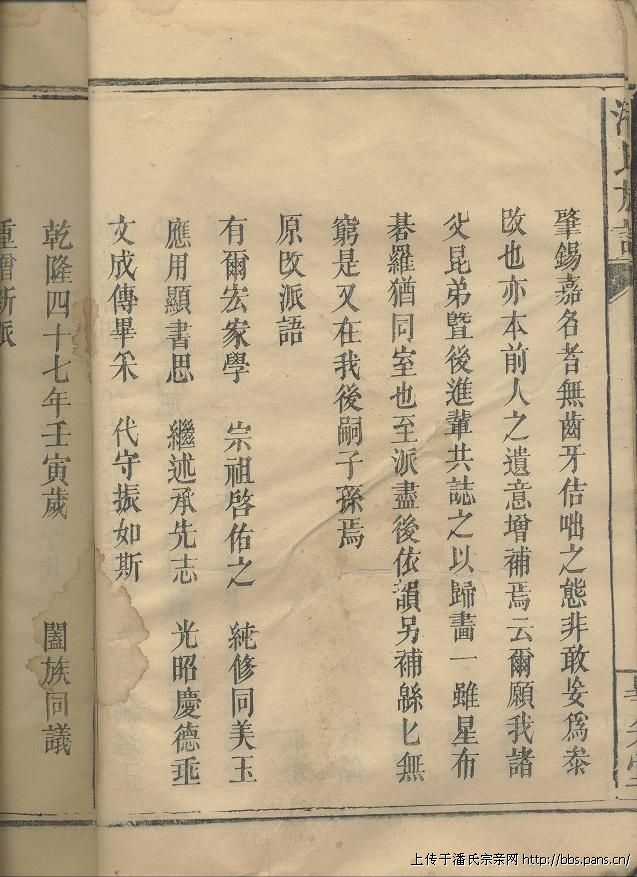 肇錫嘉名者無齒牙佶咄之態非敢妄爲叅
攺也亦本前人之遺意增補焉云爾願我諸
父昆弟暨後進輩共誌之以歸畫一雖星布
碁羅猶同室也至派盡後依韻另補緜匕無
窮是又在我後嗣子孫焉
原攺派語
有爾宏家學 崇祖啓佑之 純修同美玉
應用顯書思 繼述承先志 光昭慶德垂
文成傳畢釆 代守振如斯
乾隆四十七年壬寅歲 闔族同議
重增新派
上传于潘氏宗亲网 http://bbs.pans.cn/